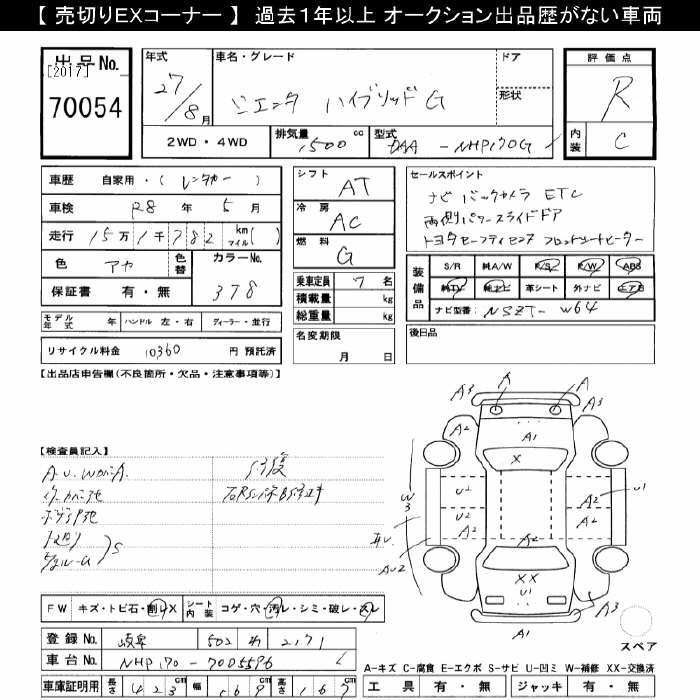 【 売切りEXコーナー 】 過去1年以上 オークション出品歴がない車両
出品No.
[2017]
70054
年式
27/8月
車名・グレード
シエンタ ハイブリッドG
ドア
形状
2WD・4WD
排気量 1500 cc
型式 DAA - NHP170G
評価点
R
内装 C
車歴 自家用・( レンタカー )
車検 R8 年 5 月
走行 15万1千782 km マイル( )
色 アカ
色替
カラーNo.
378
保証書 有・無
モデル年式 年 ハンドル 左・右 ディーラー・並行
リサイクル料金 10360 円 預託済
シフト AT
冷房 AC
燃料 G
乗車定員 7 名
積載量 kg
総重量 kg
名変期限
月 日
セールスポイント
ナビ バックカメラ ETC
両側パワースライドドア
トヨタセーフティセンス フロントシートヒーター
装備品
S/R 純A/W P/S P/W ABS
純TV 純ナビ 革シート 外ナビ エアB
ナビ型番: NSZT-W64
後日品
【出品店申告欄(不良箇所・欠品・注意事項等)】
【検査員記入】
S修復
FW キズ・トビ石・削レX シート内装 コゲ・穴・汚レ・シミ・破レ・スレ
登録No. 岐阜 502 わ 2171
車台No. NHP170-7005596
車庫証明用 長さ 423 幅 169 高さ 167
A3 A A A3
A2 A1
X
W3 U2 A2 U1
U2 A2 A2
A2
AU2
XX
U1
A3
A1
スペア
A-キズ C-腐食 E-エクボ S-サビ U-凹ミ W-補修 XX-交換済
工具 有・無 ジャッキ 有・無